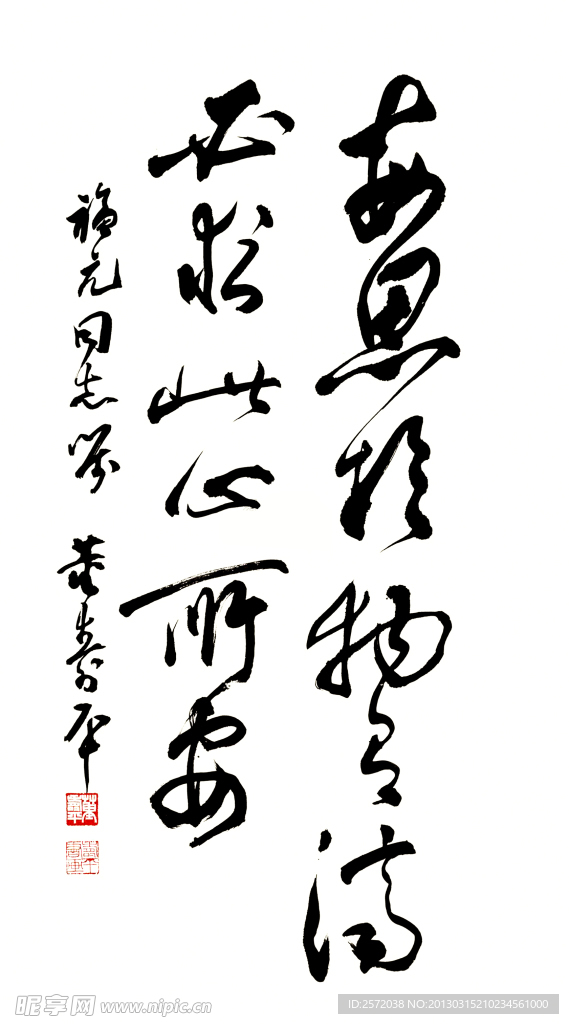 每思於物有濟
必求此心所安
福元同志屬 董壽平
昵享网 www.nipic.cn
ID:2572038 NO:20130315210234561000